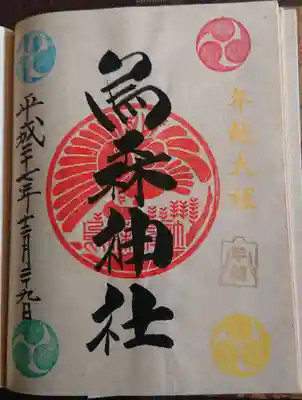 年越大祓
烏森神社
平成二十七年十二月二十九日